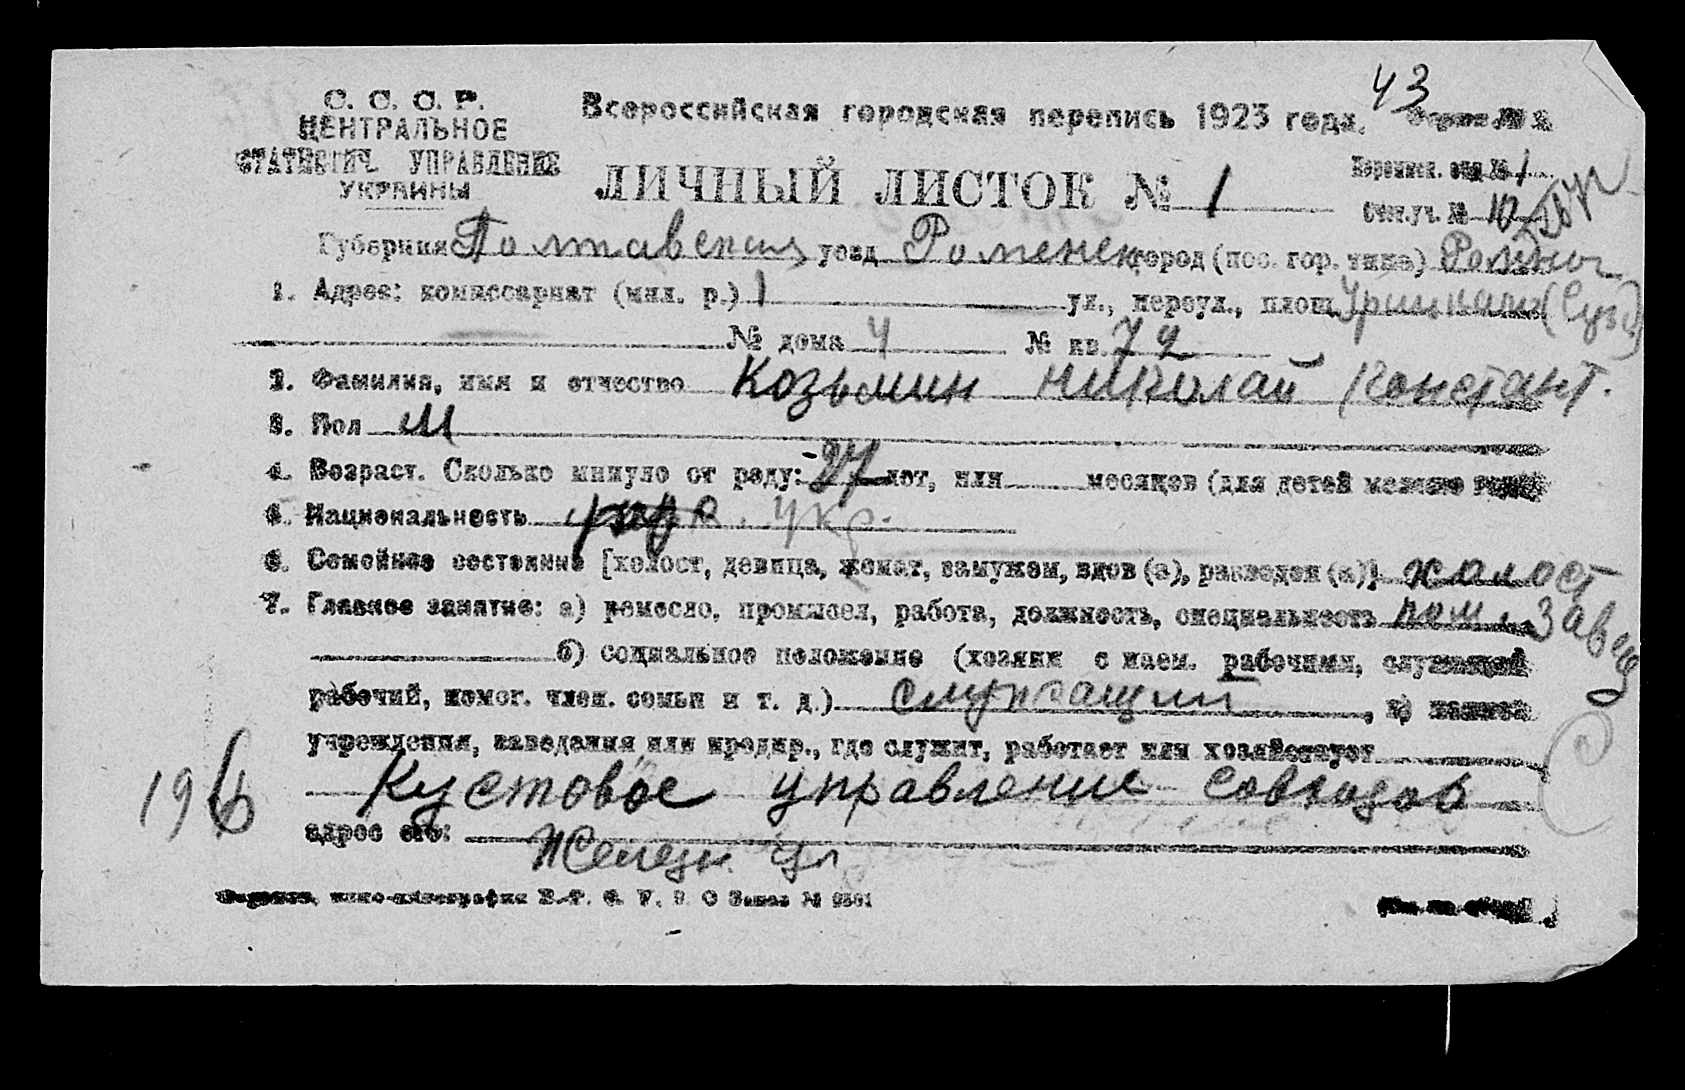 43
С. С. С. Р.
ЦЕНТРАЛЬНОЕ
СТАТИСТИЧ. УПРАВЛЕНИЕ
УКРАИНЫ
Всероссийская городская перепись 1923 года. Форма № 2
ЛИЧНЫЙ ЛИСТОК № 1
Переписн. отд № 1
Счет. уч. № 10
Губерния Полтавская уезд Роменск город (пос. гор. типа) Ромны
1. Адрес: комиссариат (мил. р.) 1 ул., переул., площ. Урицкаго
№ дома 4 № кв. 72
2. Фамилия, имя и отчество Козьмин Николай Констант.
3. Пол М
4. Возраст. Сколько минуло от роду: 27 лет, или месяцев (для детей моложе года)
5. Национальность укр.
6. Семейное состояние [холост, девица, женат, замужем, вдов (а), разведен (а)] холост
7. Главное занятие: а) ремесло, промысел, работа, должность, специальность пом. Завед
б) социальное положение (хозяин с наем. рабочими, служащий
рабочий, помог. член. семьи и т. д.) служащий, в) название
учреждения, заведения или предпр., где служит, работает или хозяйствует
Кустовое управление совхозов
196
адрес его: Железн. ул
Заказ №